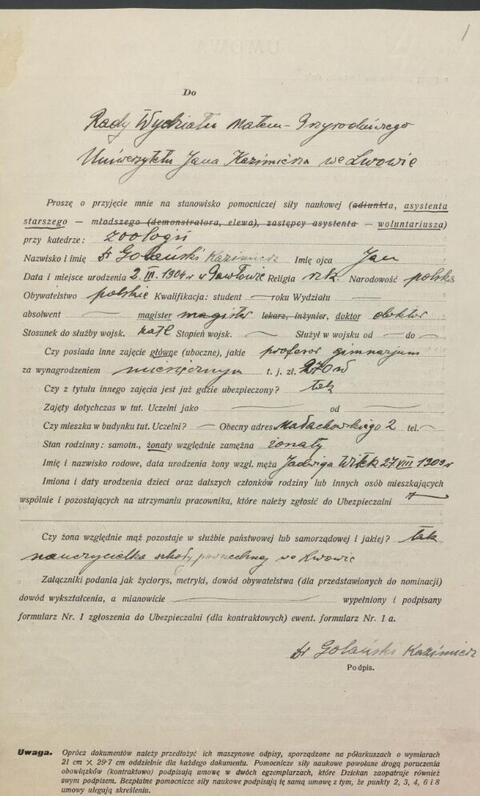 1
Do
Rady Wydziału Matem-Przyrodniczego
Uniwersytetu Jana Kazimierza we Lwowie
Proszę o przyjęcie mnie na stanowisko pomocniczej siły naukowej (adiunkta, asystenta
starszego — młodszego (demonstratora, elewa), zastępcy asystenta — woluntariusza)
przy katedrze: zoologii
Nazwisko i imię dr Golański Kazimierz Imię ojca Jan
Data i miejsce urodzenia 2. III. 1904 r w Pawłowie Religia rzk. Narodowość polska
Obywatelstwo polskie Kwalifikacja: student — roku Wydziału —
absolwent — magister magister lekarz, inżynier, doktor doktor
Stosunek do służby wojsk. kat E Stopień wojsk. — Służył w wojsku od — do —
Czy posiada inne zajęcie główne (uboczne), jakie profesor gimnazjum
za wynagrodzeniem miesięcznym t. j. zł. 270 zł
Czy z tytułu innego zajęcia jest już gdzie ubezpieczony? tak
Zajęty dotychczas w tut. Uczelni jako — od —
Czy mieszka w budynku tut. Uczelni? — Obecny adres Małachowskiego 2 tel. —
Stan rodzinny: samotn., żonaty względnie zamężna żonaty
Imię i nazwisko rodowe, data urodzenia żony wzgl. męża Jadwiga Witek 27 VIII 1909 r
Imiona i daty urodzenia dzieci oraz dalszych członków rodziny lub innych osób mieszkających
wspólnie i pozostających na utrzymaniu pracownika, które należy zgłosić do Ubezpieczalni
Czy żona względnie mąż pozostaje w służbie państwowej lub samorządowej i jakiej? tak
nauczycielka szkoły powszechnej we Lwowie
Załączniki podania jak życiorys, metryki, dowód obywatelstwa (dla przedstawionych do nominacji)
dowód wykształcenia, a mianowicie — wypełniony i podpisany
formularz Nr. 1 zgłoszenia do Ubezpieczalni (dla kontraktowych) ewent. formularz Nr. 1 a.
dr Golański Kazimierz
Podpis.
Uwaga. Oprócz dokumentów należy przedłożyć ich maszynowe odpisy, sporządzone na półarkuszach o wymiarach
21 cm × 29·7 cm oddzielnie dla każdego dokumentu. Pomocnicze siły naukowe powołane drogą poruczenia
obowiązków (kontraktowo) podpisują umowę w dwóch egzemplarzach, które Dziekan zaopatruje również
swym podpisem. Bezpłatne pomocnicze siły naukowe podpisują tę samą umowę z tym, że punkty 2, 3, 4, 6 i 8
umowy ulegają skreśleniu.